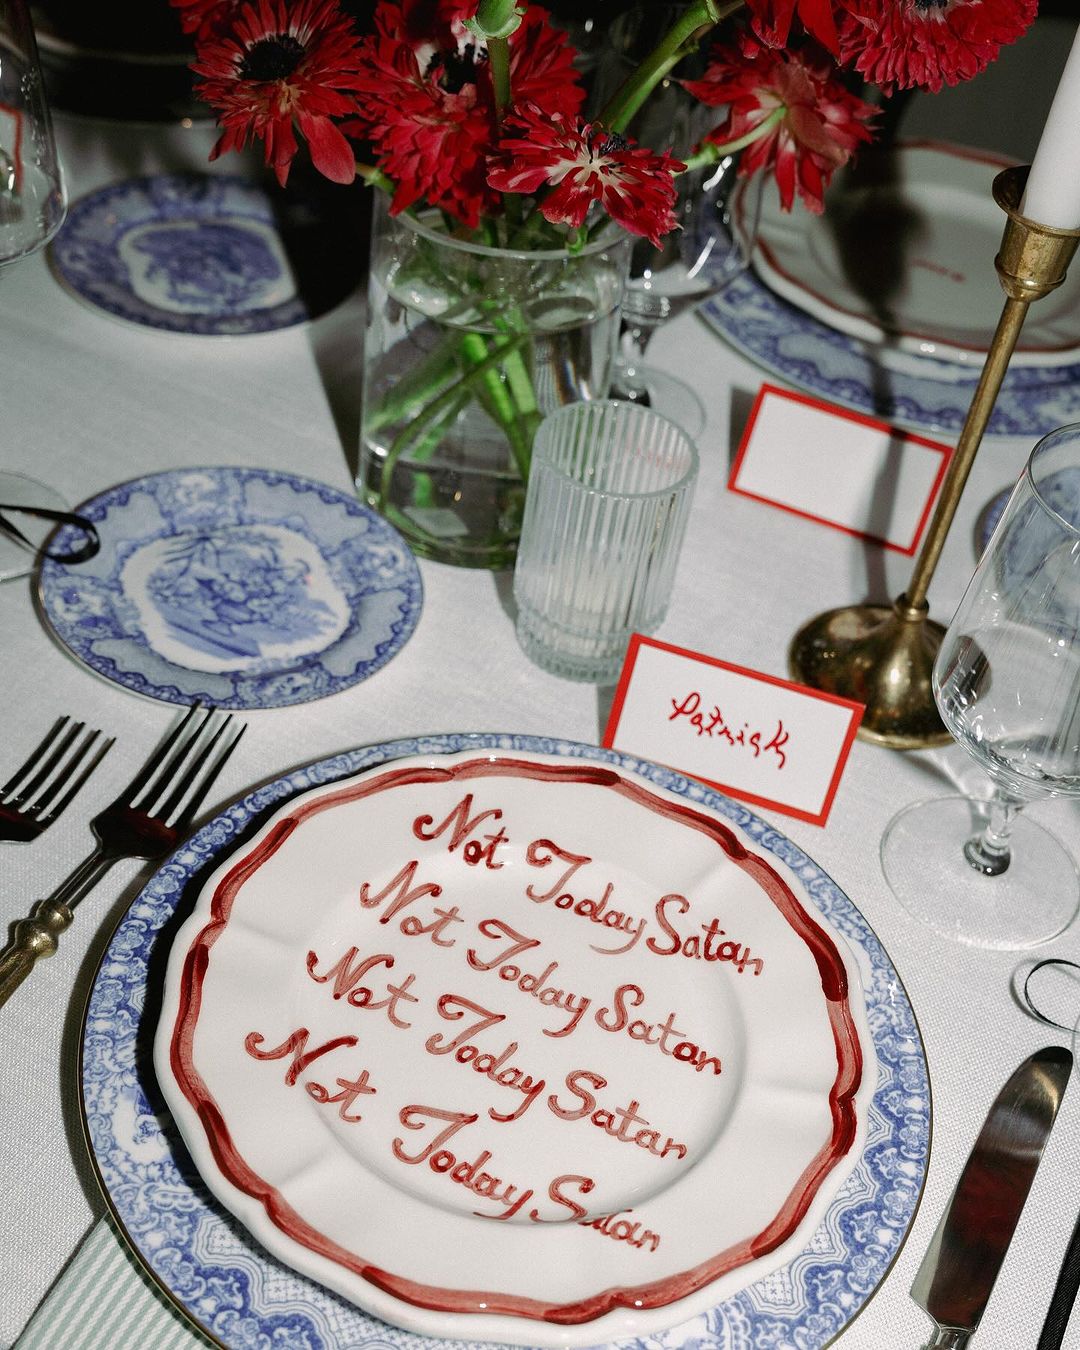 Patrick
Not Today Satan
Not Today Satan
Not Today Satan
Not Today Satan